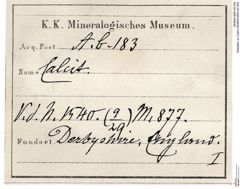 K. K. Mineralogisches Museum.
Acq. Post A.b-183
Name Calcit.
V.d.N. 1540. (9/29) M, 877.
Fundort. Derbyshire, England.
I